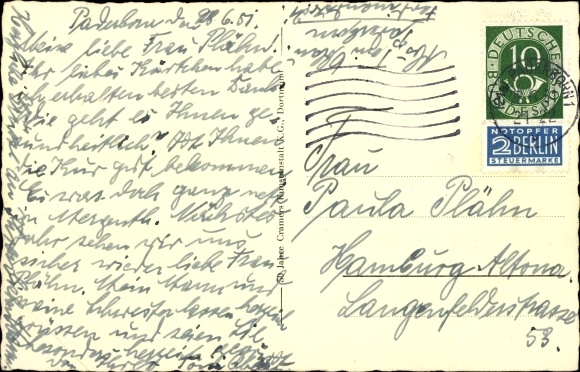 Paderborn den 28.6.51.
Meine liebe Frau Plähn.
Ihr liebes Kärtchen habe
ich erhalten besten Dank
wie geht es Ihnen ge
sundheitlich? Ist Ihnen
die Kur gut bekommen
Es war doch ganz nett
in Mergenth. Nächstes
Jahr sehen wir uns
sicher wieder liebe Frau
Plähn. Mein Mann und
meine Schwester lassen herzlich
grüssen und seien Sie
besonders herzlich gegrüsst
von Ihrer Toni
50 Jahre Cramers Kunstanstalt K.G., Dortmund
DEUTSCHE
BUNDESPOST
10
PADERBORN 1
NOTOPFER
2 BERLIN
STEUERMARKE
Frau
Paula Plähn
Hamburg Altona.
Langenfelderstrasse
53.